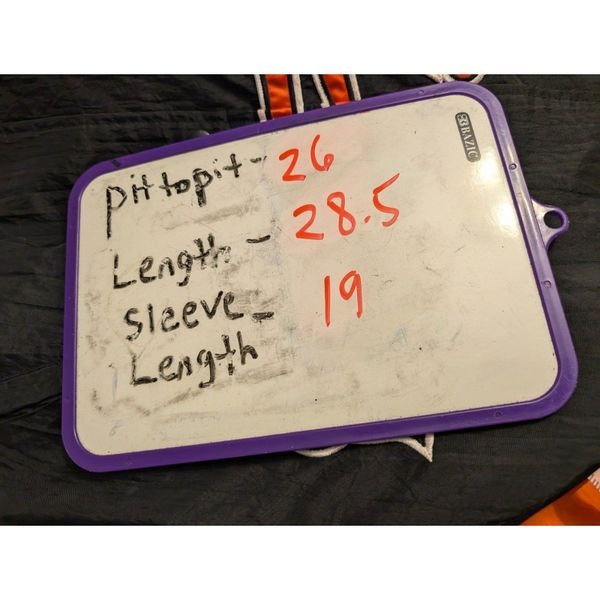 BAZIC
Pit to pit - 26
Length - 28.5
Sleeve - 19
Length